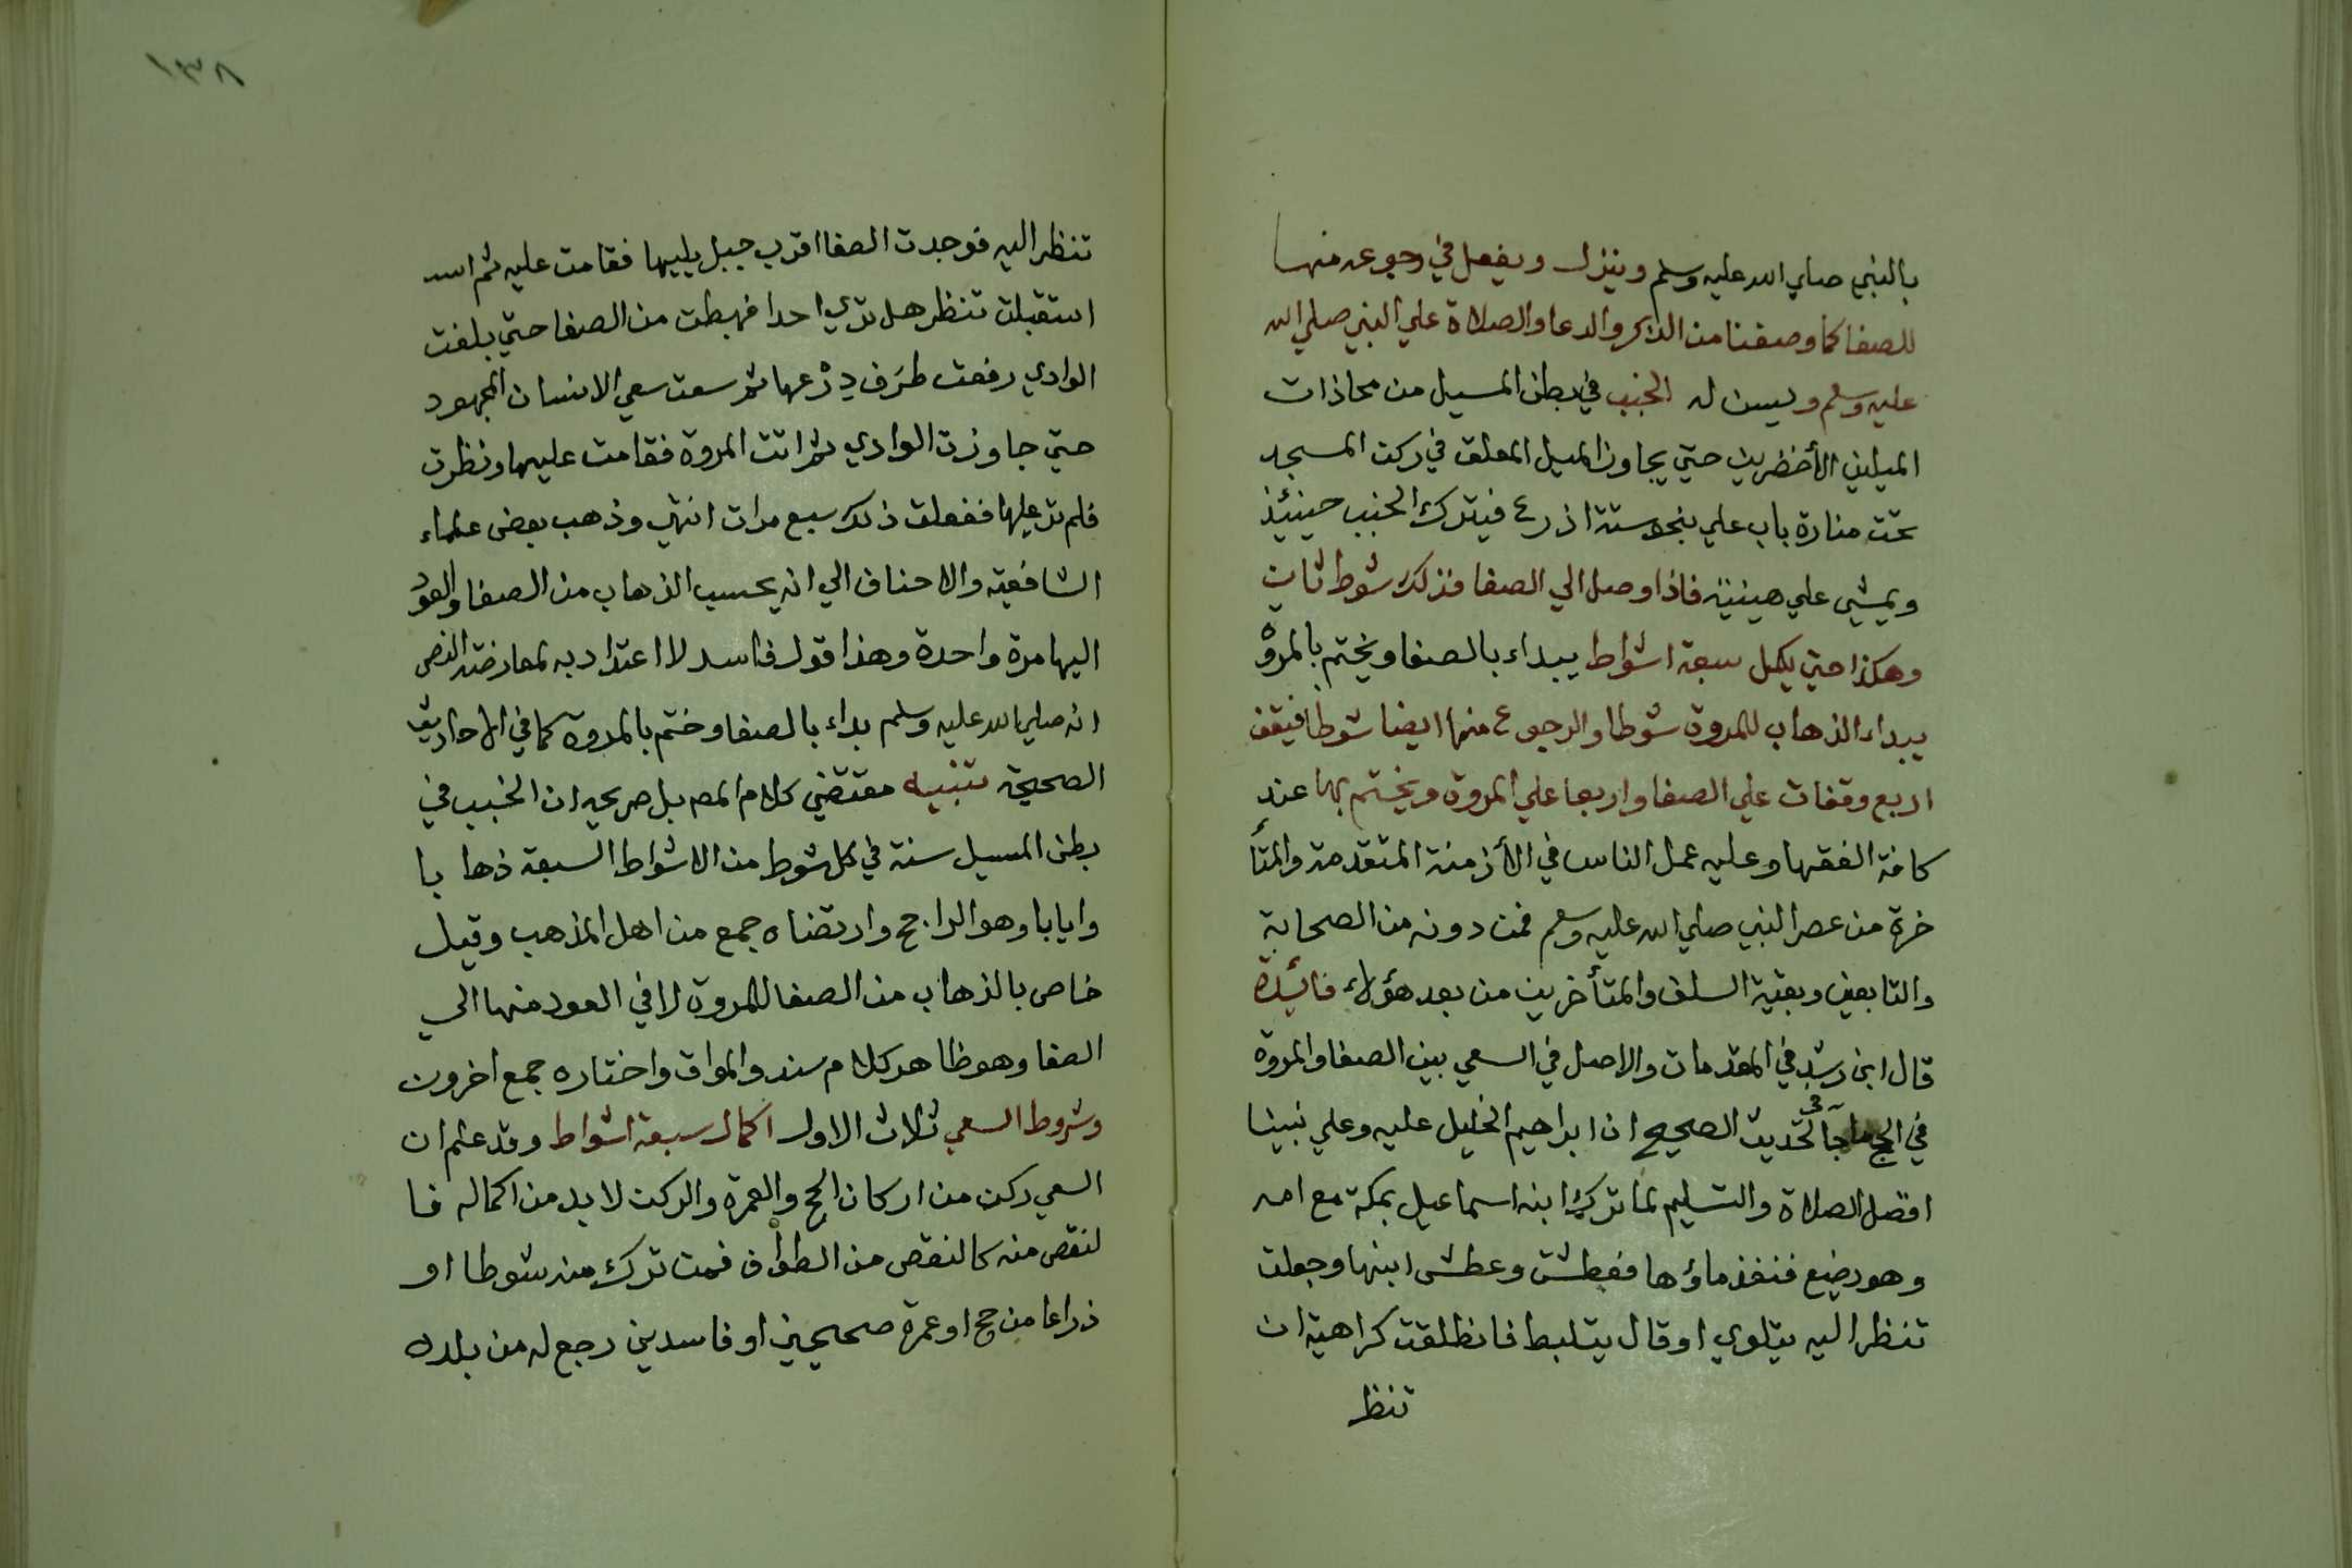 بالنبي صلي الله عليه وسلم وينزل ويفعل في رجوعه منها
للصفا كما وصفنا من الذكر والدعا والصلاة علي النبي صلي الله
عليه وسلم ويسن له الخبب في بطن المسيل من محاذات
الميلين الأخضرين حتي يجاوز الميل المعلق في ركن المسجد
تحت منارة باب علي بنحو ستة اذرع فيترك الخبب حينئذ
ويمشي علي هينته فاذا وصل الي الصفا فذلك شوط ثان
وهكذا حتي يكمل سبعة اشواط يبداء بالصفا ويختم بالمروة
يبداء الذهاب للمروة شوطا والرجوع منها ايضا شوطا فيقف
اربع وقفات علي الصفا واربعا علي المروة ويختم بها عند
كافة الفقها وعليه عمل الناس في الأزمنة المتقدمة والمتأ
خرة من عصر النبي صلي الله عليه وسلم فمن دونه من الصحابة
والتابعين وبقية السلف والمتأخرين من بعد هؤلاء فائدة
قال ابن رشد في المقدمات والاصل في السعي بين الصفا والمروة
في الحج ماجآ في الحديث الصحيح ان ابراهيم الخليل عليه وعلي نبينا
افضل الصلاة والتسليم لما ترك ابنه اسماعيل بمكة مع امه
وهو رضيع فنفذ ماؤها فعطشت وعطش ابنها وجعلت
تنظر اليه يتلوي او قال يتلبط فانطلقت كراهية ان
تنظر
١٣٨
تنظر اليه فوجدت الصفا اقرب جبل يليها فقامت عليه ثم اسد
استقبلت تنظر هل تري احدا فهبطت من الصفا حتي بلغت
الوادي رفعت طرف درعها ثم سعت سعي الانسان المجهود
حتي جاوزت الوادي ثم اتت المروة فقامت عليها ونظرت
فلم تر عليها ففعلت ذلك سبع مرات انتهي وذهب بعض علماء
الشافعية والاحناف الي انه يحسب الذهاب من الصفا والعود
اليها مرة واحدة وهذا قول فاسد لا اعتداد به لمعارضته النص
انه صلي الله عليه وسلم بداء بالصفا وختم بالمروة كما في الاحاديث
الصحيحة تنبيه مقتضي كلام المص بل صريحه ان الخبب في
بطن المسيل سنة في كل شوط من الاشواط السبعة ذها با
وايابا وهو الراجح وارتضاه جمع من اهل المذهب وقيل
خاص بالذهاب من الصفا للمروة لا في العود منها الي
الصفا وهو ظاهر كلام سند والمواق واختاره جمع اخرون
وشروط السعي ثلاث الاول اكمال سبعة اشواط وقد علم ان
السعي ركن من اركان الحج والعمرة والركن لا بد من اكماله فا
لنقص منه كالنقص من الطواف فمن ترك منه شوطا او
ذراعا من حج او عمرة صحيحين او فاسدين رجع له من بلده